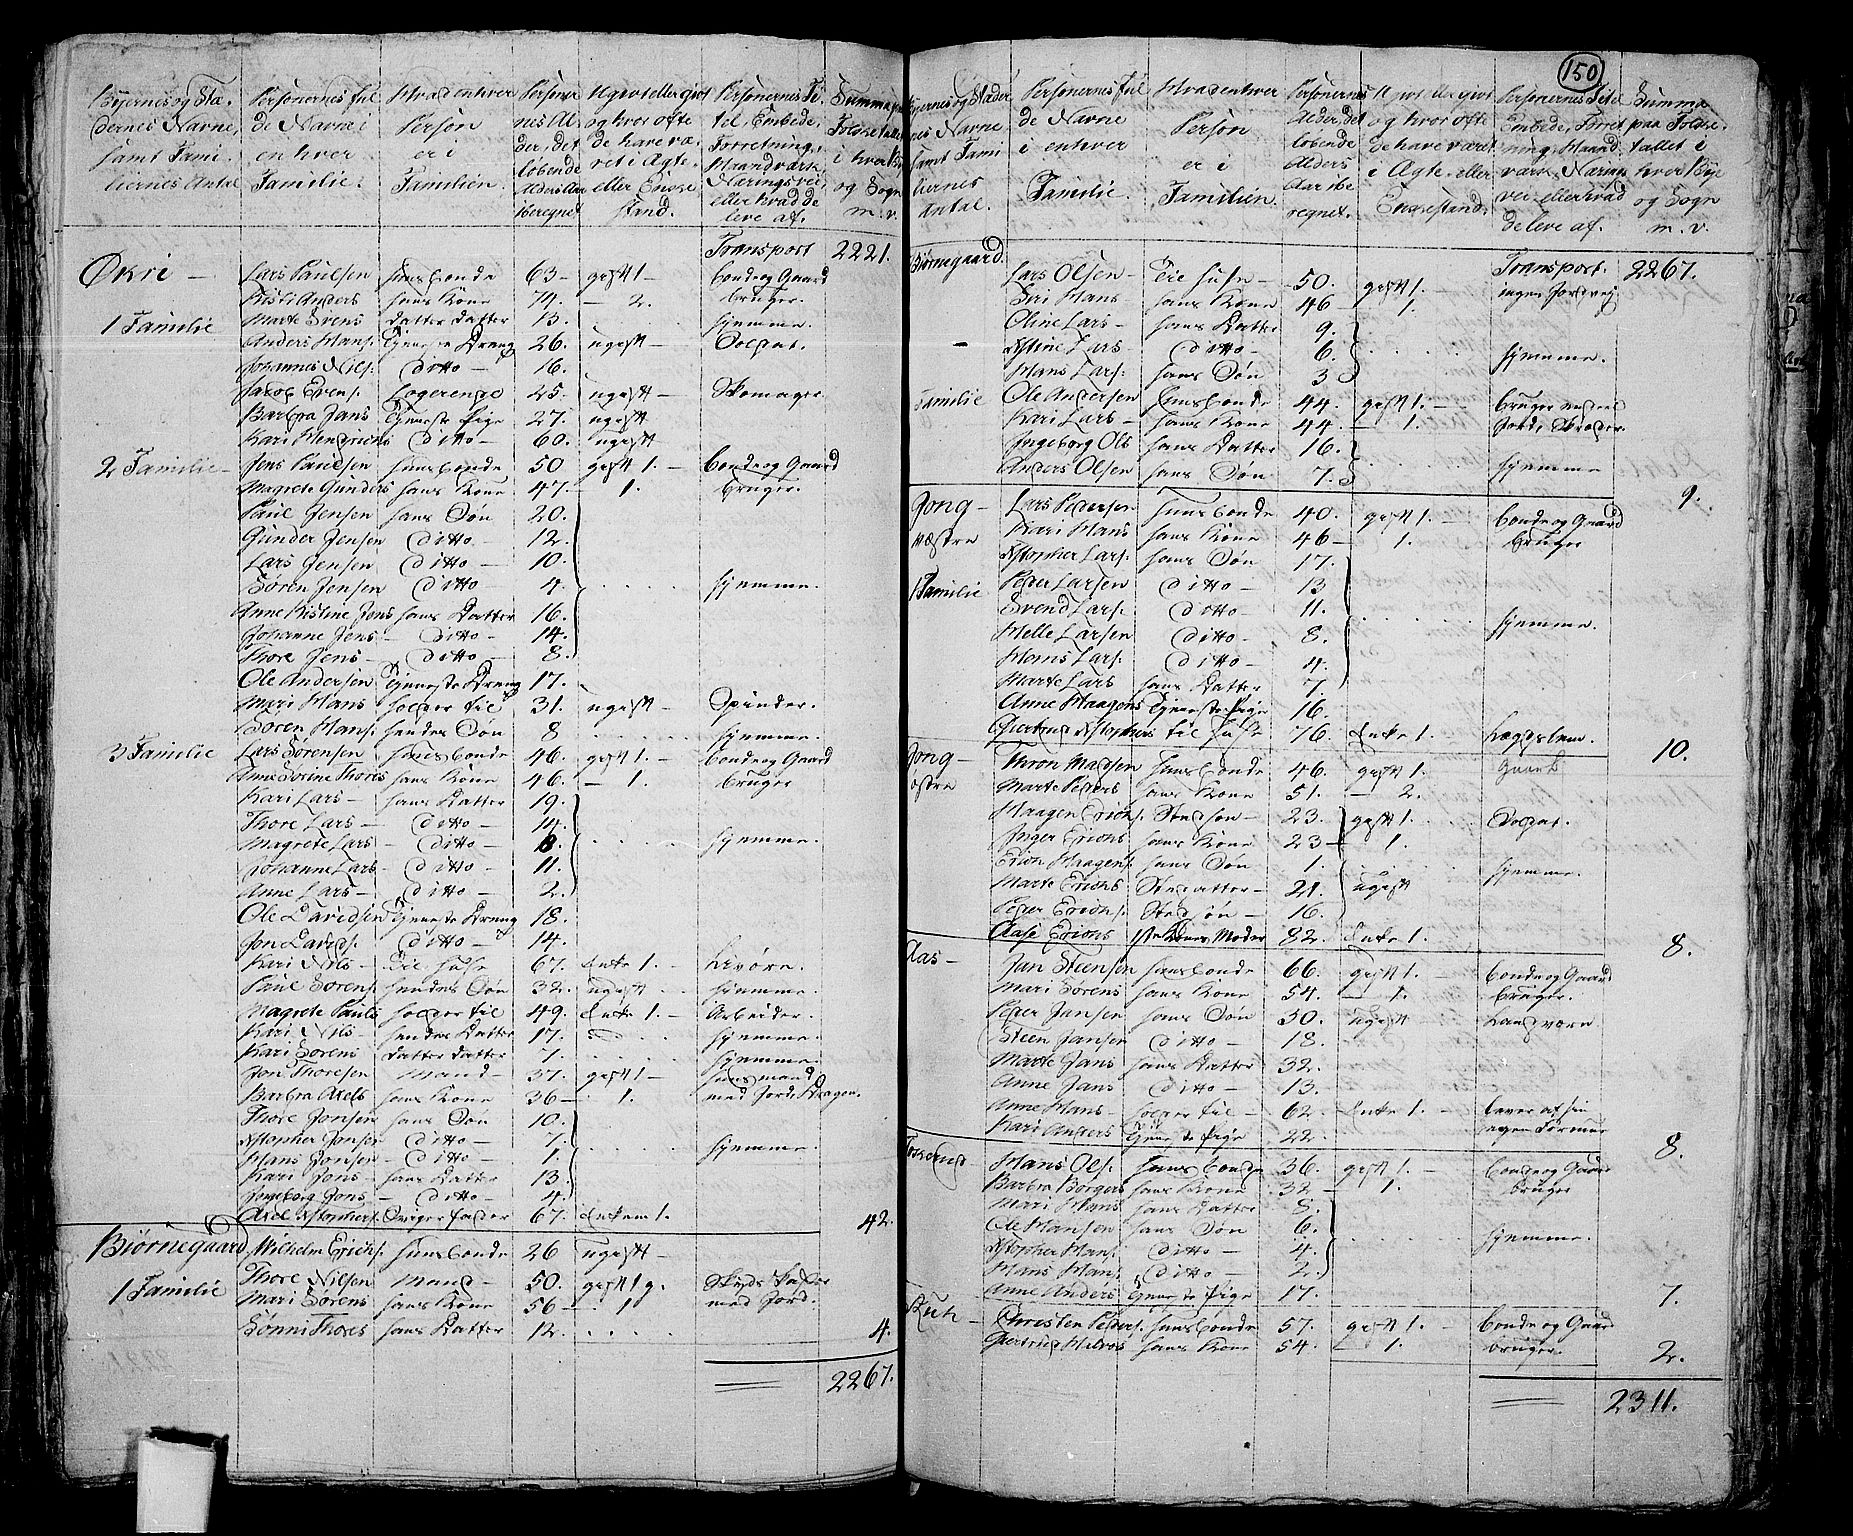 Byernes og Stædernes Navne, samt Familiernes Antal
Personernes fulde Navne i enhver Familie.
Hvad enhver Person er i Familien.
Personernes Alder, det løbende Alders Aar iberegnet
Ugivt eller givt og hvor ofte de have været i Ægte- eller Enkestand.
Personernes Titel, Embede, Forretning, Haandværk, Næringsvei, eller hvad de leve af.
Summa paa Folketallet i hver Bye og Sogn m. v.
Transport 2221.
Økri –
Lars Paulsen Huusbonde 63 – gift 1 – Bonde og Gaard
Kisti Anders hans Kone 74. – 2. bruger.
1 Familie
Marte Svens Datter Datter 13. hjemme.
Anders Hans: Tjeneste Dreng 26. ugift – Soldat.
Johannes Nils: ditto – 16.
Jacob Evens: Logerende 25. ugift – Skomager.
Barbra Jans Tjeneste Pige 27. ugift
Kari Hendrichs ditto – 60. ugift
2 Familie –
Jens Paulsen Huusbonde 50 gift 1. – Bonde og Gaard
Magrete Gunders hans Kone 47. – 1. bruger.
Paul Jensen hans Søn 20.
Gunder Jensen ditto – 12.
Lars Jensen ditto – 10.
Søren Jensen ditto 4. hjemme.
Anne Kistine Jens hans Datter 16.
Johanne Jens – ditto – 14.
Thore Jens – ditto – 8.
Ole Andersen Tjeneste Dreng 17.
Mari Hans holder til 31. ugift – Spinder.
Søren Hans: hendes Søn 8 hjemme.
3 Familie
Lars Sørensen Huusbonde 46. gift 1. – Bonde og Gaard
Anne Sorine Thores hans Kone 46. – 1. bruger
Kari Lars – hans Datter 19.
Thore Lars – ditto – 14.
Magrete Lars – ditto – 8. hjemme.
Johanne Lars – ditto – 11.
Anne Lars – ditto – 2.
Ole Davidsen Tjeneste Dreng 18.
Jon Davids: ditto – 14.
Kari Nils – til huse 67. Enke 1. –
Paul Sørens: hendes Søn 32. ugift – hjemme.
Magrete Pauls holder til 49. Enke 1. – Arbeider.
Kari Nils – hendes Datter 17. hjemme.
Kari Sørens Datter Datter 7. hjemme.
Jon Thoresen Mand – 37. gift 1 – huusmand
Barbra Axels hans Kone 36 – 1. med Jord Dragon.
Thore Jonsen hans Søn 10.
Kstopher Jonsen ditto – 7. hjemme.
Hans Jonsen – ditto – 1.
Kari Jons – hans Datter 13.
Ingeborg Jons – ditto – 4.
Axel Kstophers: Sviger fader 67. Enkem 1. 42.
Biørnegaard
Wilhelm Erichs: Huusbonde 26 ugift –
1 Familie
Thore Nilsen Mand – 50. gift 1 g. Skyds Skaffer
Mari Sørens hans Kone 56 – 1 med Jord.
Sønni Thores hans Datter 12. 4.
2267.
150
Byernes og Stædernes Navne samt Familiernes Antal.
Personernes fulde Navne i enhver Familie.
Hvad enhver Person er i Familien.
Personernes Alder, det løbende Alders Aar iberegnet.
Ugivt eller givt og hvor ofte de have været i Ægte- eller Enkestand.
Personernes Titel Embede, Forretning, Haandværk, Næringsvei eller hvad de leve af.
Summa paa Folketallet i hver Bye og Sogn m. v.
Transport. 2267.
Biørnegaard
Lars Olsen – til huse – 50. gift 1. – ingen Jordvej
Siri Hans hans Kone 46 – 1.
Oline Lars – hans Datter 9.
Kstine Lars – ditto – 6. hjemme.
Hans Lars: hans Søn 3
Familie
Ole Andersen Huusbonde 44. gift 1. – bruger endeel
Kari Lars – hans Kone 44. – 1. Jord, Skreder.
Ingeborg Ols hans Datter 16.
Anders Olsen hans Søn 7. hjemme
9.
Jong – vestre
Lars Pedersen Huusbonde 40. gift 1. – Bonde og Gaard
Kari Hans hans Kone 46 – 1. bruger
Kstopher Lars: hans Søn 17.
1 Familie
Peder Larsen ditto – 13
Svend Lars: ditto – 11.
Helle Larsen ditto – 8. hjemme.
Hans Lars: ditto – 4.
Marte Lars hans Datter 7.
Anne Haagens Tjeneste Pige 16.
Giertrud Kstophers til huse 76. Enke 1. Lægdslem.
10.
Jong – østre
Thron Madsen Huusbonde 46. gift 1.
Marte Peders hans Kone 51. – 2.
Haagen Erichs: Stedsøn – 23. gift 1. Soldat.
Inger Erichs hans Kone 23 – 1.
Erich Haagens: hans Søn 1. hjemme.
Marte Erichs Steddatter – 21. ugift
Peder Erichs: Stedsøn – 16.
Aase Erichs 1ste Kones Moder 82. Enke 1.
8.
Aas –
Jan Steensen Huusbonde 66. gift 1. – Bonde og Gaard
Mari Sørens hans Kone 54. – 1. bruger.
Peder Jansen hans Søn 30. ugift – Landværn.
Steen Jansen ditto – 18.
Marte Jans hans Datter 32.
Anne Jans ditto – 13.
Anne Hans – holder til – 62. Enke 1. – lever af sin
Kari Anders Tjeneste Pige 22. egen Formue
8.
Hans Ols: Huusbonde 36. gift 1. – Bonde og Gaard
Barbra Borgers hans Kone 32 – 1. bruger
Mari Hans hans Datter 8.
Ole Hansen hans Søn 6. hjemme.
Kstopher Hans: ditto – 4.
Hans Hans: ditto – 2.
Anne Anders Tjeneste Pige 17.
7.
Rud –
Christen Peders: Huusbonde 57. gift 1. – Bonde og Gaard
Giertrud Halvors hans Kone 54. – 1. bruger.
2.
2311.